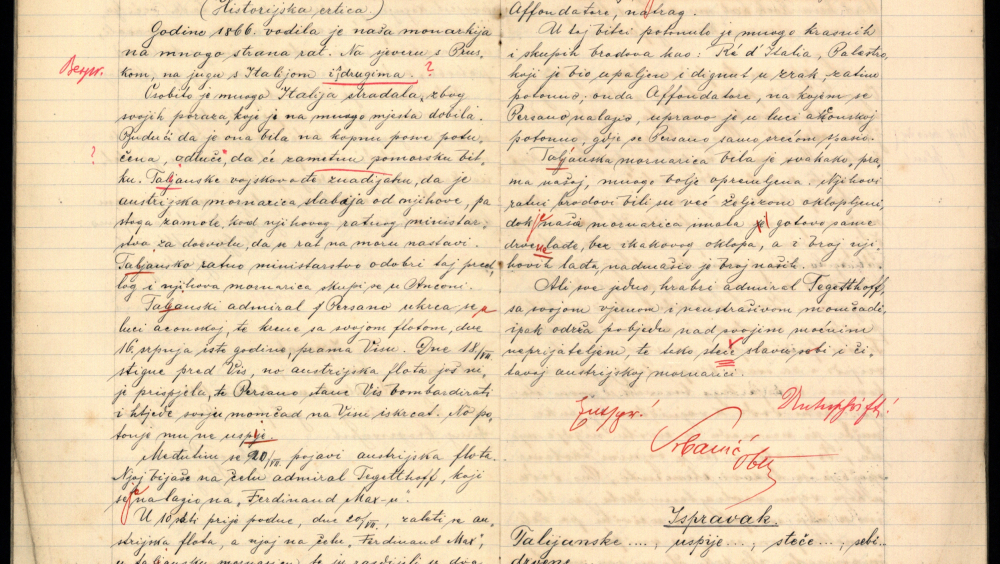 (Historijska crtica)
Godine 1866. vodila je naša monarkija
na mnogo strana rat. Na sjeveru s Prus-
kom, na jugu s Italijom i drugima. ?
Osobito je mnogo Italija stradala, zbog
svojih poraza, koje je na mnogo mjesta dobila.
Budući da je ona bila na kopnu posve potu-
? čena, odluči, da će zametnu pomorsku bit-
ku. Taljanske vojskovođe znadijahu, da je
austrijska mornarica slabija od njihove, pa
stoga zamole kod njihovog ratnog ministar-
stva za dozvolu, da u rat na moru nastavi.
Taljansko ratno ministarstvo odobri taj pred-
log i njihova mornarica skupi se u Anconi.
Taljanski admiral Persano ukrca se u
luci aconskoj, te krene sa svojom flotom, dne
16. srpnja iste godine, prama Visu. Dne 18/VII.
stigne pred Vis, no austrijska flota još ni-
je prispjela, te Persano stane Vis bombardirati
i htjede svoju momčad na Visu iskrcat. No po-
tonje mu ne uspije.
Međutim se 20/VII. pojavi austrijska flota.
Njoj bijaše na čelu admiral Tegetthoff, koji
se nalazio na "Ferdinand Max-u".
U 10 sati prije podne, dne 20/VII., zaleti se au-
strijska flota, a njoj na čelu "Ferdinand Max",
u taljansku mornaricu te ju razdijeli u dva
Affondatore, natrag.
U toj bitci potonulo je mnogo krasnih
i skupih brodova kao: Ré d'Italia, Palestro,
koji je bio upaljen i dignut u zrak, zatim
potonuo; onda Affondatore, na kojem se
Persano nalazio, upravo je u luci akonskoj
potonuo, gdje se Persano samo srećom spasio.
Taljanska mornarica bila je svakako, pra-
ma našoj, mnogo bolje opremljena. Njihovi
ratni brodovi bili su već željezom oklopljeni,
dok je naša mornarica imala je gotovo same
drvene lađe, bez ikakovog oklopa, a i broj nji-
hovih lađa, nadmašio je broj naših.
Ali sve jedno, hrabri admiral Tegetthoff,
sa svojom vjernom i neustrašivom momčadi,
ipak održa pobjedu nad svojim moćnim
neprijateljem, te teko steče slavu sebi i či-
tavoj austrijskoj mornarici.
Unterschrift!
Ispravak.
Talijanske ...., uspije ..., steče ..., sebi..
drvene